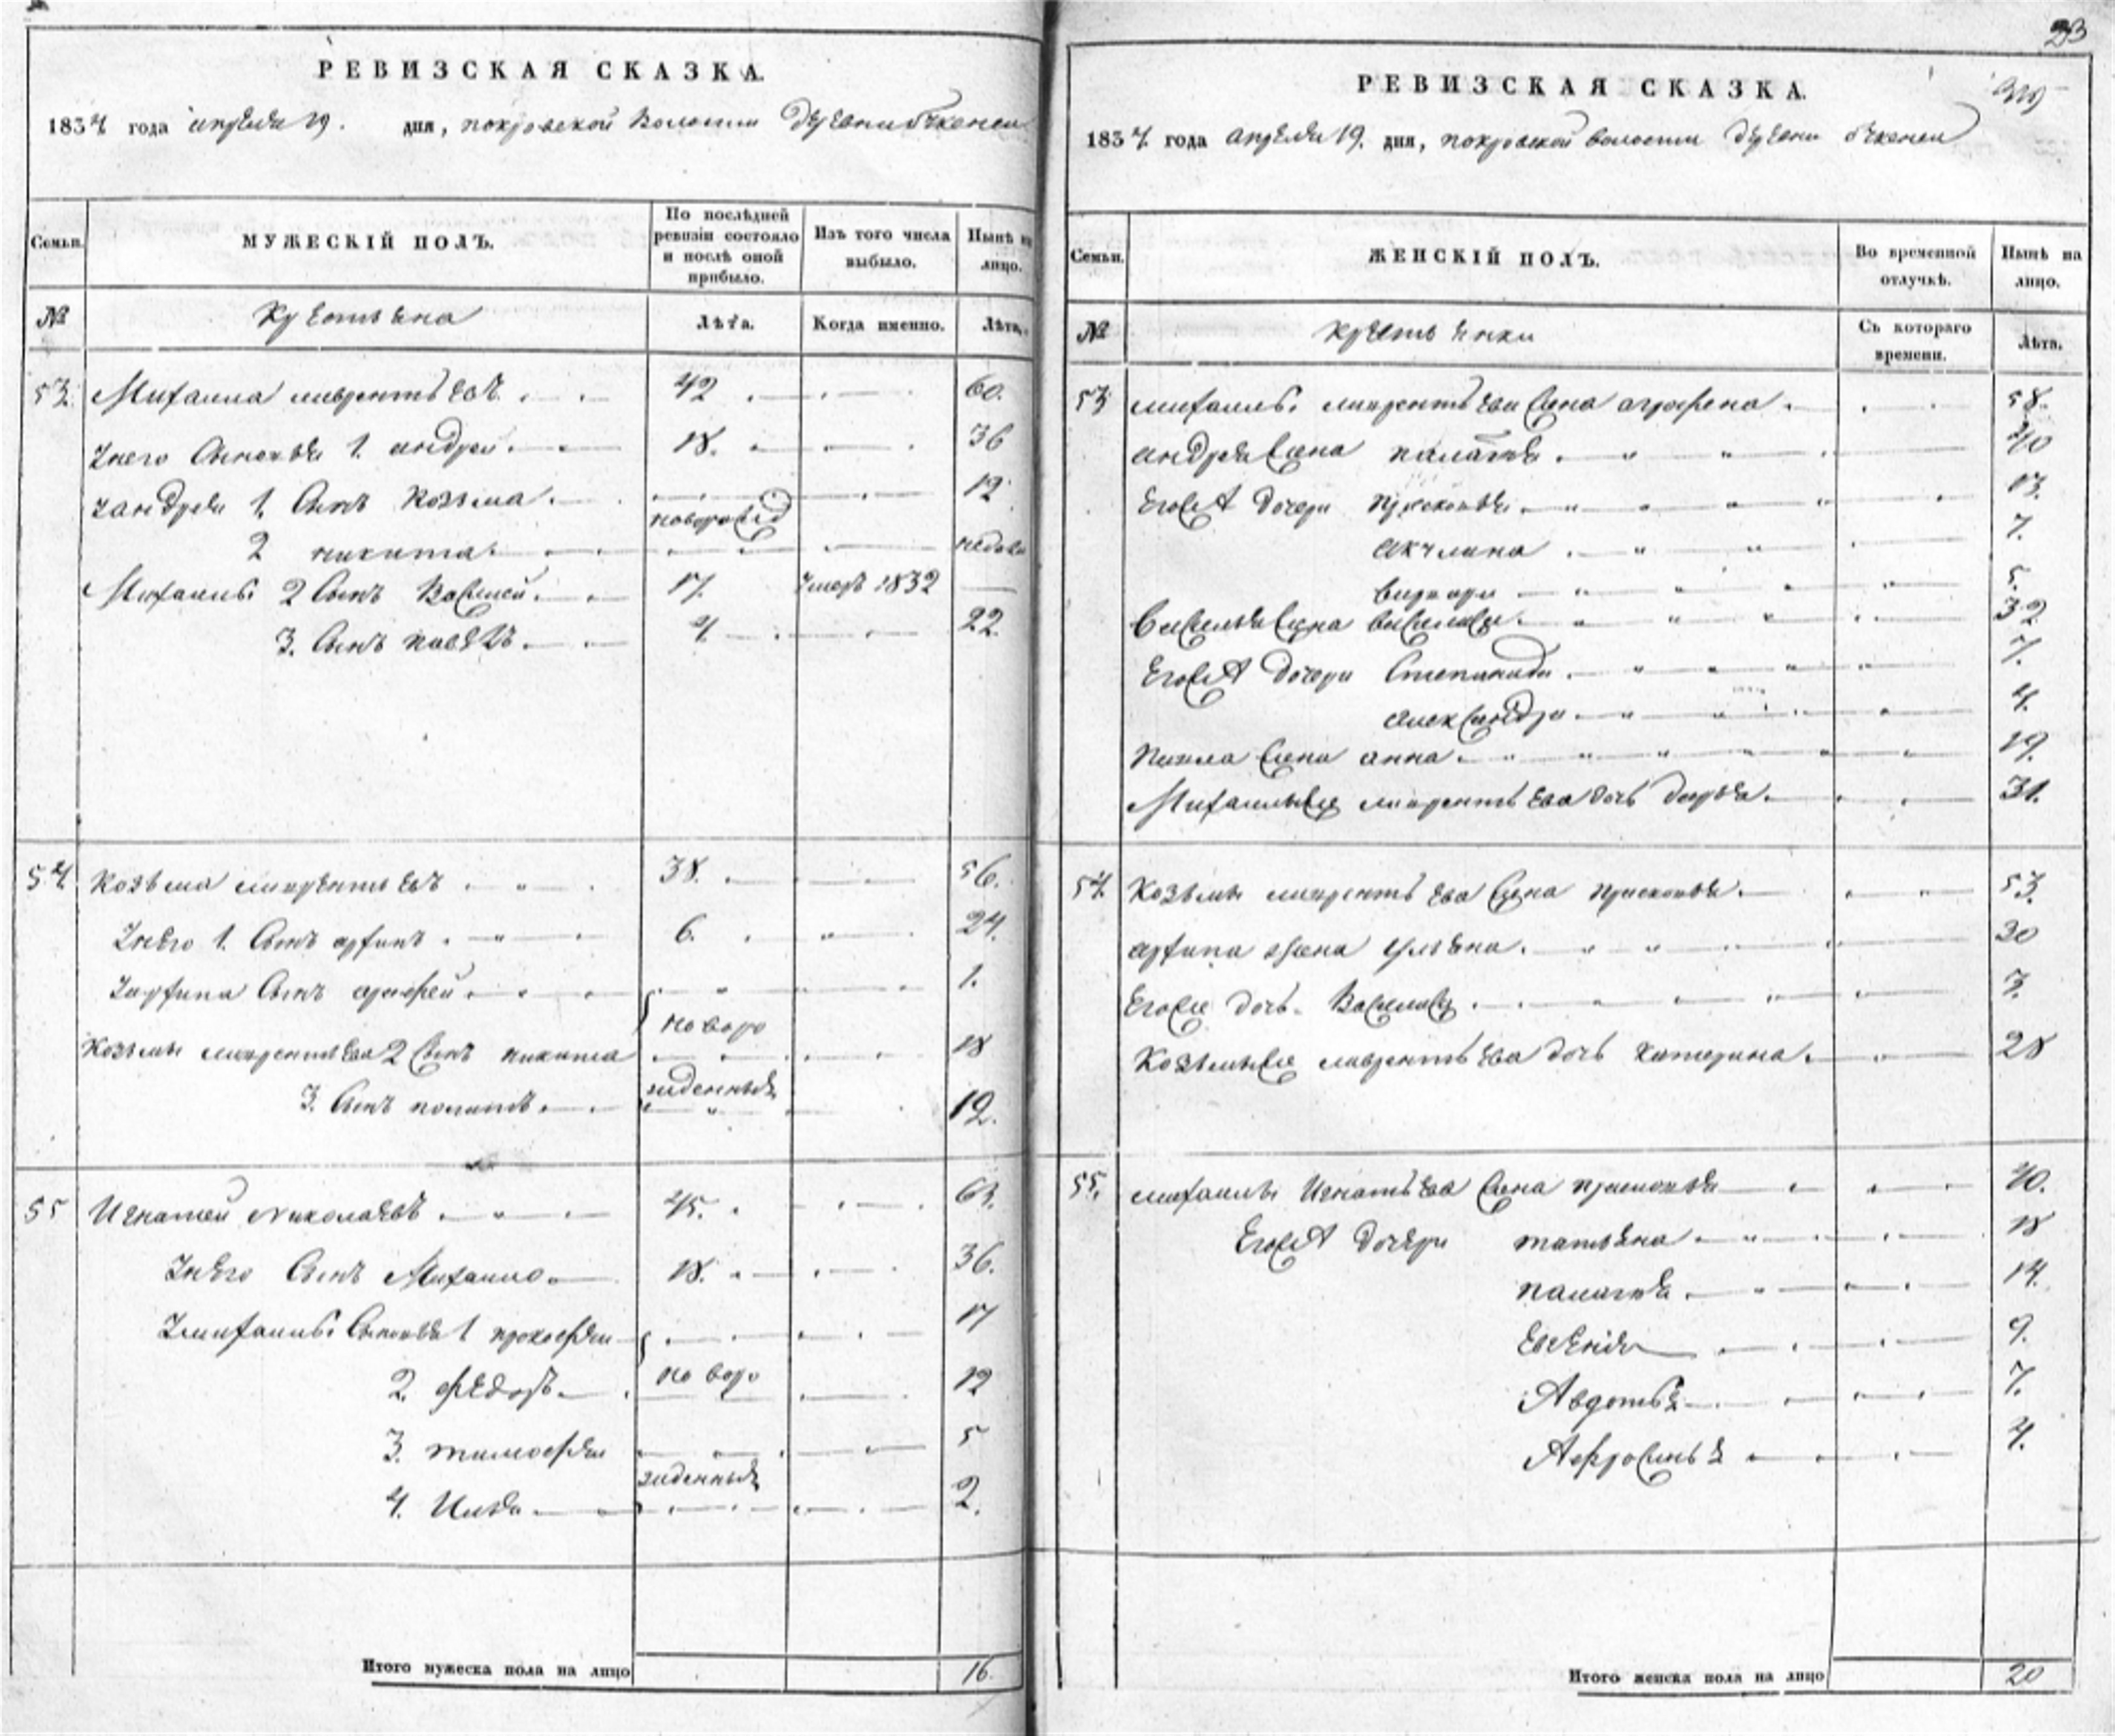 РЕВИЗСКАЯ СКАЗКА.
1834 года апреля 19. дня, покровской Волости деревни
Семьи.
МУЖЕСКІЙ ПОЛЪ.
По послѣдней ревизіи состояло и послѣ оной прибыло.
Изъ того числа выбыло.
Нынѣ на лицо.
№
Крестьяна
Лѣта.
Когда именно.
Лѣта.
53. Михаила лаврентьевъ 42 60.
Унего Сыновья 1. андрей 18. 36
Уандрея 1. Сынъ Козьма новорожд 12
2 никита недели
Михаилы 2 Сынъ Василей 17. Умеръ 1832
3. Сынъ павелъ 4. 22.
54. Козьма лаврентьевъ 38. 56.
Унего 1. Сынъ архипъ 6. 24.
Уархипа Сынъ 1.
новоро
Козьмы лаврентьева 2 Сынъ никита 18
жденныя
3. Сынъ 12.
55 Игнатей Николаевъ 45. 63.
Унего Сынъ Михаило 18. 36.
Умихаилы Сыновья 1 прокофей 17
2. федоръ новоро 12
3. тимофей 5
жденныя
4. Илья 2.
Итого мужеска пола на лицо 16.
23
РЕВИЗСКАЯ СКАЗКА.
1834. года апреля 19. дня, покровской волости деревни
Семьи.
ЖЕНСКІЙ ПОЛЪ.
Во временной отлучкѣ.
Нынѣ на лицо.
№
крестьянки
Съ котораго времени.
Лѣта.
53 михаилы лаврентьева жена аграфена 58.
андрея жена палагея 40
Егожъ дочери прасковья 13.
акулина 7.
варвара 5.
василья жена василиса 32
Егожъ дочери Степанида 7.
александра 4.
павла жена анна 19.
Михаилы же лаврентьева дочь дарья 31.
54. Козьмы лаврентьева жена прасковья 53.
архипа жена ульяна 20
Егоже дочь Василиса 3.
Козьмы же лаврентьева дочь катерина 28
55. михаилы Игнатьева жена прасковья 40.
Егожъ дочери татьяна 18
палагея 14.
Евгения 9.
Авдотья 7.
Афросинья 4.
Итого женска пола на лицо 20